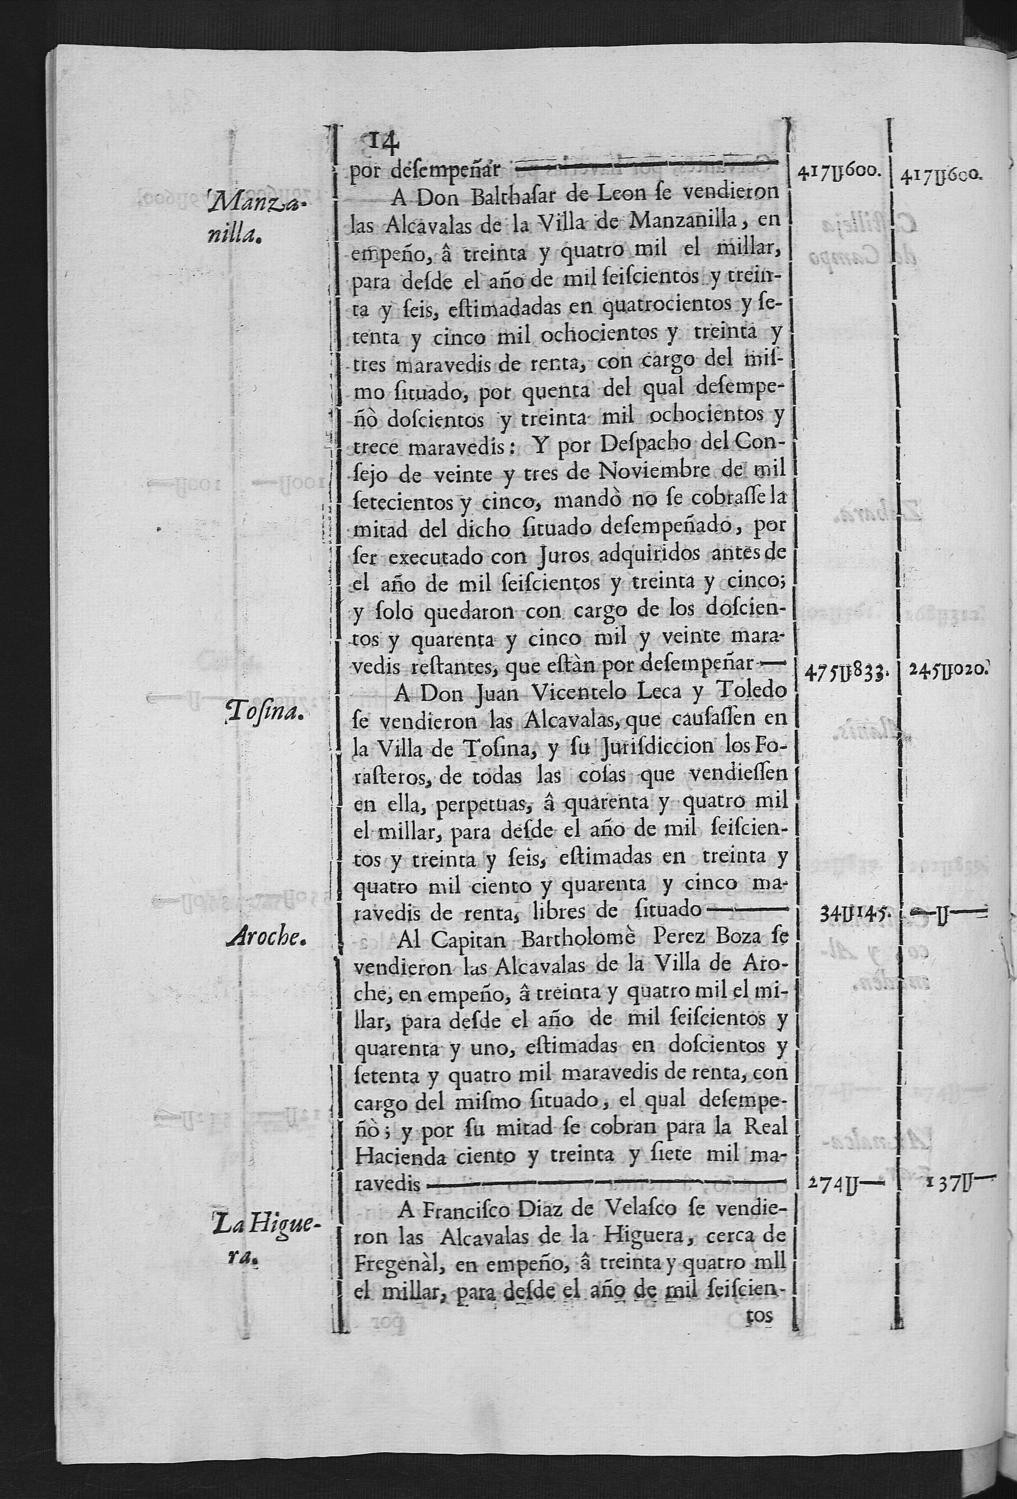 14
por deſempeñar —— 417U600. 417U600.
Manza-
nilla.
A Don Balthaſar de Leon ſe vendieron
las Alcavalas de la Villa de Manzanilla, en
empeño, â treinta y quatro mil el millar,
para deſde el año de mil ſeiſcientos y trein-
ta y ſeis, eſtimadadas en quatrocientos y ſe-
tenta y cinco mil ochocientos y treinta y
tres maravedis de renta, con cargo del miſ-
mo ſituado, por quenta del qual deſempe-
ñò doſcientos y treinta mil ochocientos y
trece maravedis: Y por Deſpacho del Con-
ſejo de veinte y tres de Noviembre de mil
ſetecientos y cinco, mandò no ſe cobraſſe la
mitad del dicho ſituado deſempeñado, por
ſer executado con Juros adquiridos antes de
el año de mil ſeiſcientos y treinta y cinco;
y ſolo quedaron con cargo de los doſcien-
tos y quarenta y cinco mil y veinte mara-
vedis reſtantes, que eſtàn por deſempeñar — 475U833. 245U020.
Toſina.
A Don Juan Vicentelo Leca y Toledo
ſe vendieron las Alcavalas, que cauſaſſen en
la Villa de Toſina, y ſu Juriſdiccion los Fo-
raſteros, de todas las coſas que vendieſſen
en ella, perpetuas, â quarenta y quatro mil
el millar, para deſde el año de mil ſeiſcien-
tos y treinta y ſeis, eſtimadas en treinta y
quatro mil ciento y quarenta y cinco ma-
ravedis de renta, libres de ſituado —— 34U145. —U—
Aroche.
Al Capitan Bartholomè Perez Boza ſe
vendieron las Alcavalas de la Villa de Aro-
che, en empeño, â treinta y quatro mil el mi-
llar, para deſde el año de mil ſeiſcientos y
quarenta y uno, eſtimadas en doſcientos y
ſetenta y quatro mil maravedis de renta, con
cargo del miſmo ſituado, el qual deſempe-
ñò; y por ſu mitad ſe cobran para la Real
Hacienda ciento y treinta y ſiete mil ma-
ravedis —— 274U— 137U—
La Higue-
ra.
A Franciſco Diaz de Velaſco ſe vendie-
ron las Alcavalas de la Higuera, cerca de
Fregenàl, en empeño, â treinta y quatro mll
el millar, para deſde el año de mil ſeiſcien-
tos